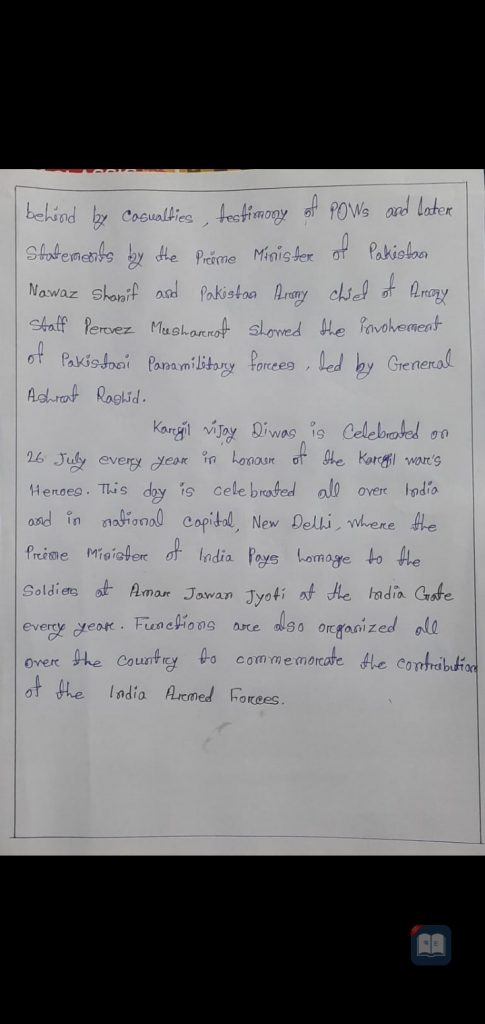 behind by Casualties, testimony of POWs and later
Statements by the Prime Minister of Pakistan
Nawaz Sharif and Pakistan Army chief of Army
Staff Pervez Musharrof showed the involvement
of Pakistani Paramilitary forces, led by General
Ashraf Rashid.
Kargil vijay Diwas is Celebrated on
26 July every year in honour of the Kargil war's
Heroes. This day is celebrated all over India
and in national capital, New Delhi, where the
Prime Minister of India Pays homage to the
Soldiers at Amar Jawan Jyoti at the India Gate
every year. Functions are also organized all
over the country to commemorate the contribution
of the India Armed Forces.